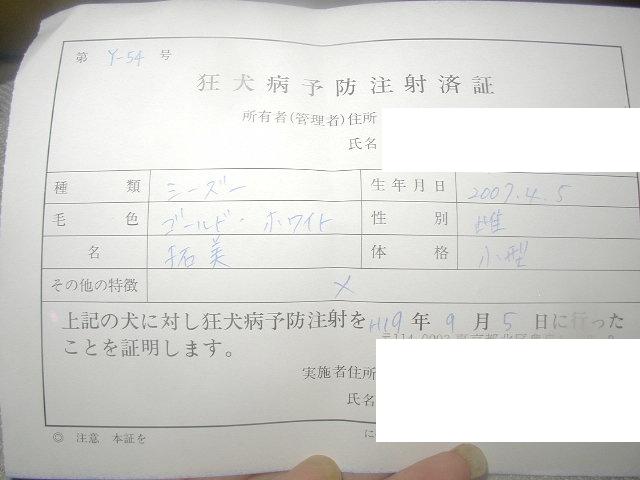 第 Y-54 号
狂犬病予防注射済証
所有者(管理者)住所
氏名
種類 シーズー 生年月日 2007.4.5
毛色 ゴールド・ホワイト 性別 雌
名 拓美 体格 小型
その他の特徴 ×
上記の犬に対し狂犬病予防注射をH19年9月5日に行った
ことを証明します。
実施者住所
氏名
◎ 注意 本証を に